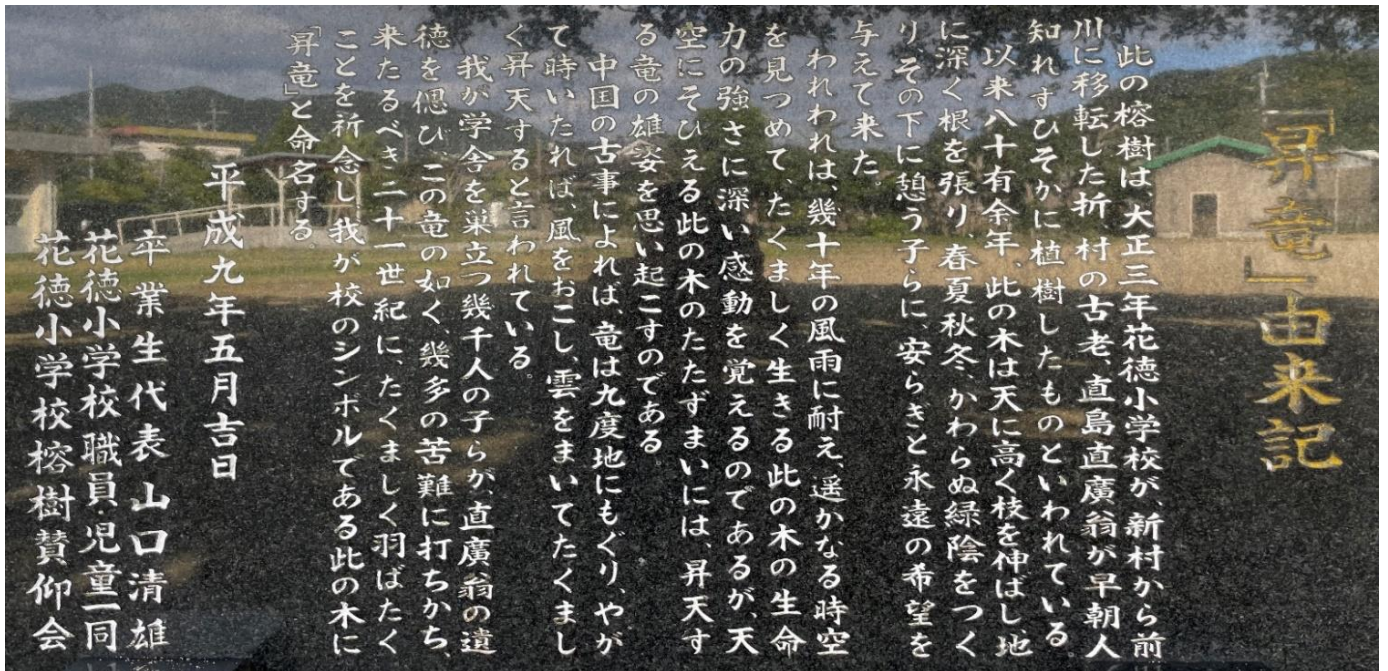 「昇竜」由来記
此の榕樹は、大正三年花徳小学校が、新村から前
川に移転した折、村の古老、直島直廣翁が早朝人
知れずひそかに植樹したものといわれている。
以来八十有余年、此の木は天に高く枝を伸ばし地
に深く根を張り、春夏秋冬、かわらぬ緑陰をつく
り、その下に憩う子らに、安らぎと永遠の希望を
与えて来た。
われわれは、幾十年の風雨に耐え、遥かなる時空
を見つめて、たくましく生きる此の木の生命
力の強さに深い感動を覚えるのであるが、天
空にそびえる此の木のたたずまいには、昇天す
る竜の雄姿を思い起こすのである。
中国の古事によれば、竜は九度地にもぐり、やが
て時いたれば、風をおこし、雲をまいてたくまし
く昇天すると言われている。
我が学舎を巣立つ幾千人の子らが、直廣翁の遺
徳を偲び、この竜の如く、幾多の苦難に打ちかち、
来たるべき二十一世紀に、たくましく羽ばたく
ことを祈念し我が校のシンボルである此の木に
「昇竜」と命名する。
平成九年五月吉日
卒業生代表山口清雄
花徳小学校職員・児童一同
花徳小学校榕樹賛仰会